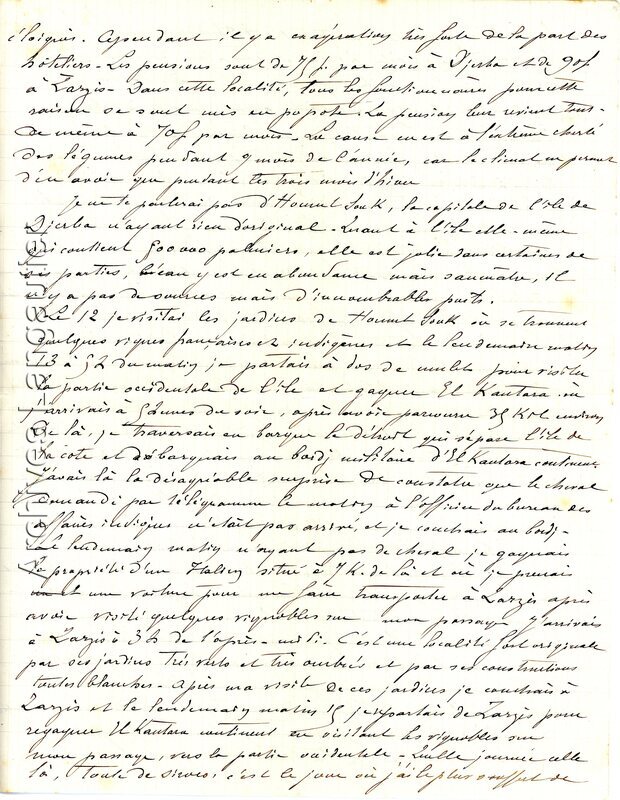 éloignés. Cependant il y a exagération très forte de la part des
hôteliers. Les pensions sont de 75f. par mois à Djerba et de 90f
à Zarzis. Dans cette localité, tous les fonctionnaires pour cette
raison se sont mis en popote. La pension leur revient tout
de même à 70f par mois. La cause en est à l'extrême cherté
des légumes pendant 9 mois de l'année, car le climat ne permet
d'en avoir que pendant les trois mois d'hiver
je ne te parlerai pas d'Houmt Souk, la capitale de l'île de
Djerba n'ayant rien d'original. Quant à l'île elle-même
qui contient 500000 palmiers, elle est jolie dans certaines de
ses parties, l'eau y est en abondance mais saumâtre, il
n'y a pas de sources mais d'innombrables puits.
Le 12 je visitai les jardins de Houmt Souk où se trouvent
quelques vignes françaises et indigènes et le lendemain matin
13 à 5h2 du matin je partais à dos de mulet pour visiter
la partie occidentale de l'île et gagner El Kantara où
j'arrivais à 5 heures du soir, après avoir parcouru 35 Kil environ
De là, je traversais en barque le détroit qui sépare l'île de
la côte et débarquais au bordj militaire d'El Kantara continent
j'avais là la désagréable surprise de constater que le cheval
demandé par télégramme le matin à l'officier du bureau des
affaires indigènes n'était pas arrivé, et je couchais au bordj.
Le lendemain matin n'ayant pas de cheval je gagnais
la propriété d'un Italien située à 7 K. de là et où je prenais
une voiture pour me faire transporter à Zarzis après
avoir visité quelques vignobles sur mon passage. J'arrivais
à Zarzis à 3h de l'après-midi. C'est une localité fort originale
par ses jardins très verts et très ombrés et par ses constructions
toutes blanches. Après ma visite de ces jardins je couchais à
Zarzis et le lendemain matin 15 je repartais de Zarzis pour
regagner El Kantara continent en visitant les vignobles sur
mon passage, vers la partie occidentale. Quelle journée celle
là, toute de siroco; c'est le jour où j'ai le plus souffert de